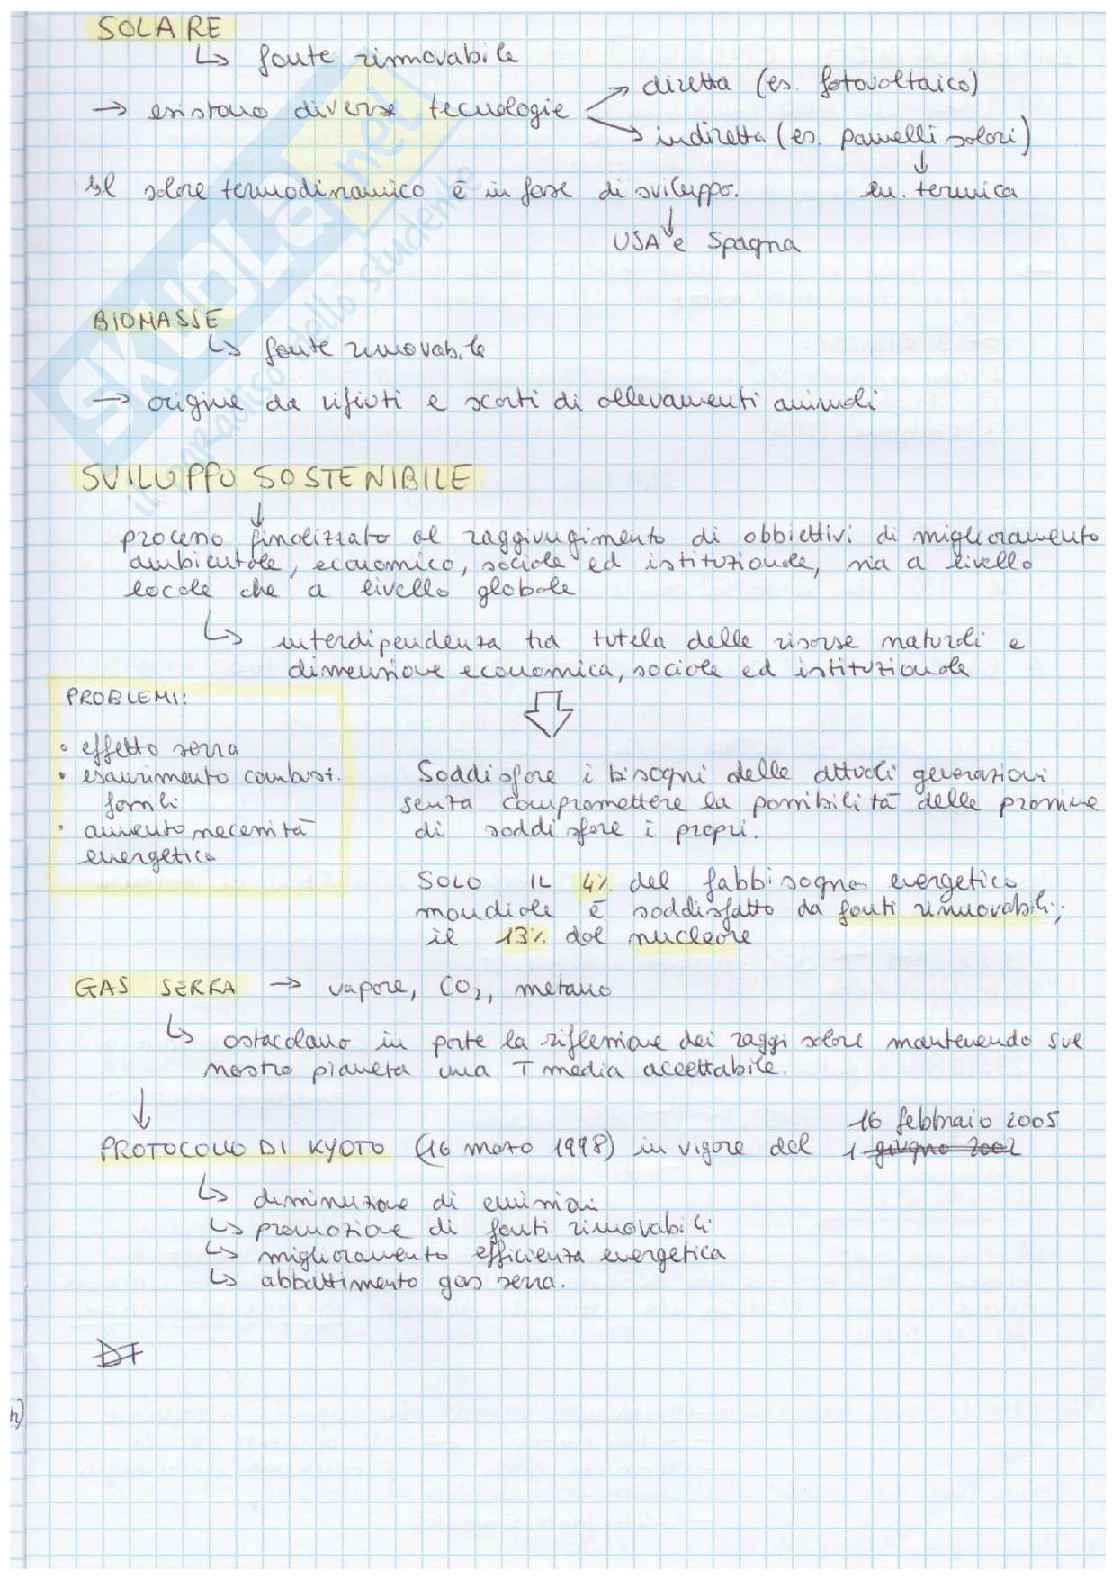 SOLARE
↳ fonte rinnovabile
→ esistono diverse tecnologie
→ diretta (es. fotovoltaico)
→ indiretta (es. pannelli solari)
↓
en. termica
Il solare termodinamico è in fase di sviluppo.
↓
USA e Spagna
BIOMASSE
↳ fonte rinnovabile
→ origine da rifiuti e scarti di allevamenti animali
SVILUPPO SOSTENIBILE
↓
processo finalizzato al raggiungimento di obbiettivi di miglioramento
ambientale, economico, sociale ed istituzionale, sia a livello
locale che a livello globale
↳ interdipendenza tra tutela delle risorse naturali e
dimensione economica, sociale ed istituzionale
PROBLEMI:
• effetto serra
• esaurimento combust.
fossili
• aumento necessità
energetica
Soddisfare i bisogni delle attuali generazioni
senza compromettere la possibilità delle prossime
di soddisfare i propri.
SOLO IL 4% del fabbisogno energetico
mondiale è soddisfatto da fonti rinnovabili;
il 13% dal nucleare
GAS SERRA → vapore, CO₂, metano
↳ ostacolano in parte la riflessione dei raggi solari mantenendo sul
nostro pianeta una T media accettabile.
↓
16 febbraio 2005
PROTOCOLLO DI KYOTO (16 marzo 1998) in vigore dal 1 giugno 2002
↳ diminuzione di emissioni
↳ promozione di fonti rinnovabili
↳ miglioramento efficienza energetica
↳ abbattimento gas serra.
SKUOLA.net
il paradiso dello studente